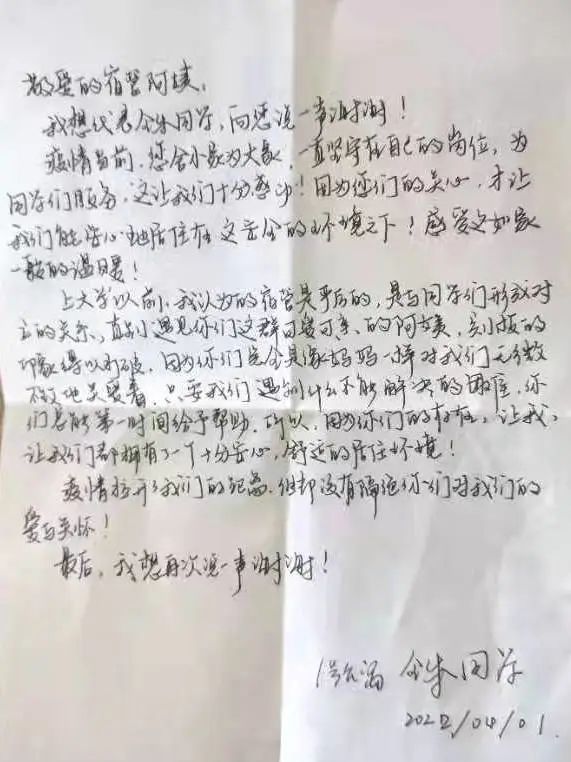 敬爱的宿管阿姨,
我想代表全体同学,向您说一声谢谢!
疫情当前,您舍小家为大家,一直坚守在自己的岗位,为
同学们服务,这让我们十分感动!因为您们的关心,才让
我们能安心地居住在这安全的环境之下!感受之如家
一般的温暖!
上大学以前,我认为的宿管是严厉的,是与同学们形成对
立的关系、直到遇见你们这群可爱可亲、的阿姨,刻板的
印象得以打破,因为你们完全是像妈妈一样对我们无微
不致地关爱着,只要我们遇到什么不能解决的困难,你
们总能第一时间给予帮助,所以,因为你们的存在,让我,
让我们都拥有了一个十分安心,舒适的居住环境!
疫情拉开我们的距离,但却没有隔绝你们对我们的
爱与关怀!
最后,我想再次说一声谢谢!
全体同学
2022/04/01.